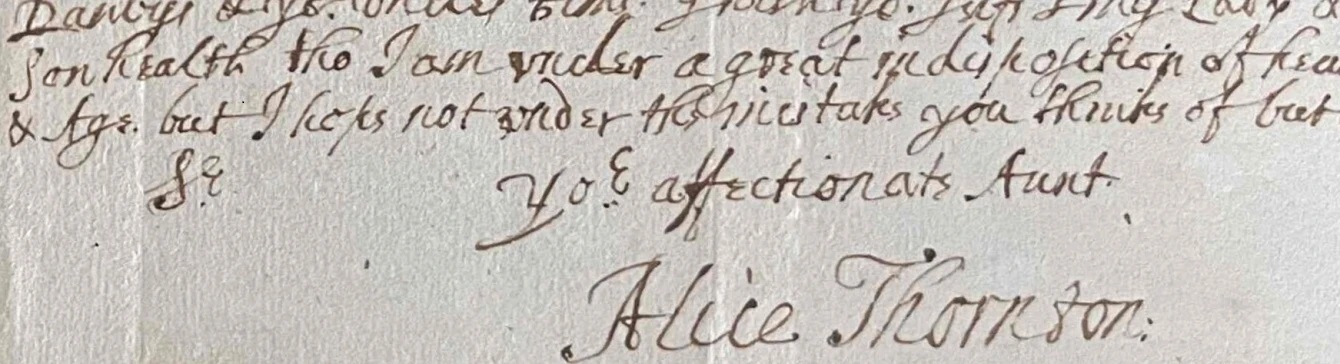 Son health tho I am vnder a great indisposition of hea
& Age. but I hope not vnder the mistake you thinke of but
Sr Yor affectionate Aunt.
Alice Thornton: